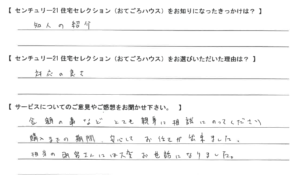 【 センチュリー21 住宅セレクション（おてごろハウス）をお知りになったきっかけは？ 】
知人の紹介
【 センチュリー21 住宅セレクション（おてごろハウス）をお選びいただいた理由は？ 】
対応の良さ
【 サービスについてのご意見やご感想をお聞かせ下さい。 】
金額の事など とても親身に相談にのってくださり
購入までの期間、安心して お任せが出来ました。
担当の さんには大変お世話になりました。